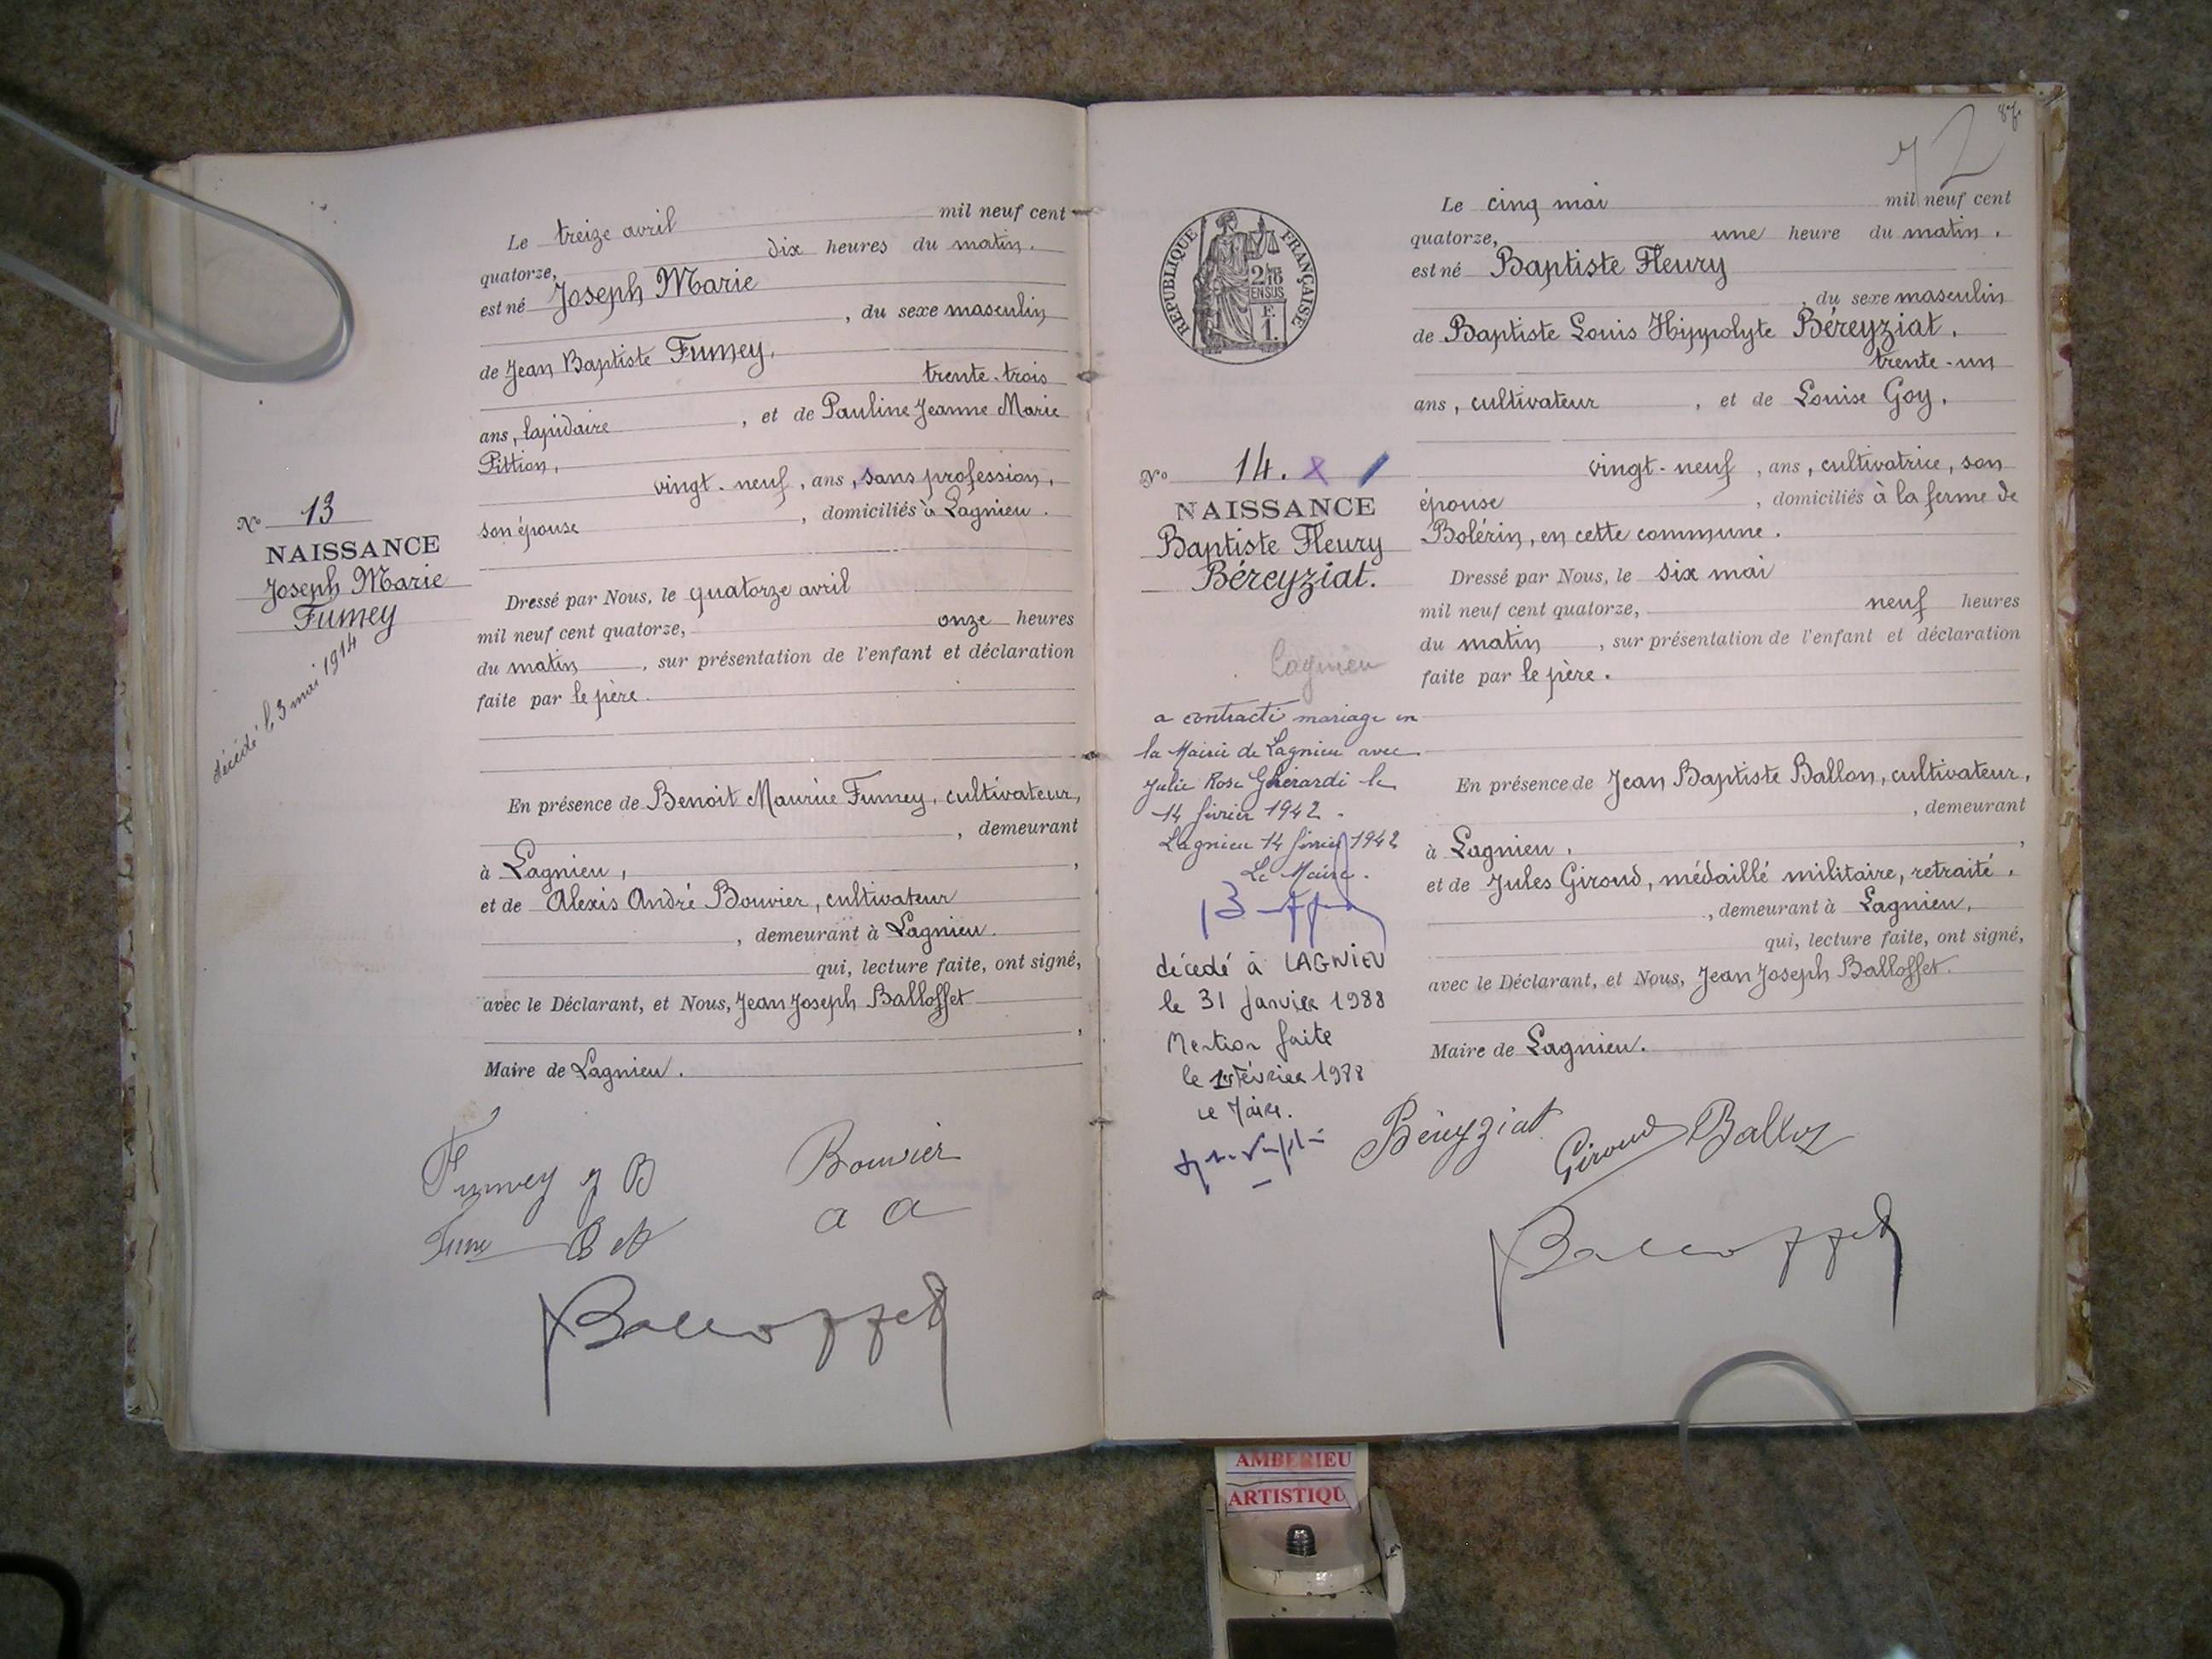 Le treize avril mil neuf cent
quatorze, dix heures du matin.
est né Joseph Marie
, du sexe masculin
de Jean Baptiste Fumey,
trente-trois
ans, lapidaire, et de Pauline Jeanne Marie
Pittion,
vingt-neuf, ans, sans profession,
son épouse, domiciliés à Lagnieu.
No 13
NAISSANCE
Joseph Marie
Fumey
décédé le 3 mai 1914
Dressé par Nous, le quatorze avril
mil neuf cent quatorze, onze heures
du matin, sur présentation de l'enfant et déclaration
faite par le père.
En présence de Benoit Maurice Fumey, cultivateur,
, demeurant
à Lagnieu,
et de Alexis André Bouvier, cultivateur
, demeurant à Lagnieu.
qui, lecture faite, ont signé,
avec le Déclarant, et Nous, Jean Joseph Balloffet
,
Maire de Lagnieu.
Fumey J B Bouvier
a a
Balloffet
87
72
Le cinq mai mil neuf cent
quatorze, une heure du matin.
est né Baptiste Fleury
, du sexe masculin
de Baptiste Louis Hippolyte Béreyziat,
trente-un
ans, cultivateur, et de Louise Goy,
vingt-neuf, ans, cultivatrice, son
épouse, domiciliés à la ferme de
Bolérin, en cette commune.
Dressé par Nous, le six mai
mil neuf cent quatorze, neuf heures
du matin, sur présentation de l'enfant et déclaration
faite par le père.
En présence de Jean Baptiste Ballon, cultivateur,
, demeurant
à Lagnieu,
et de Jules Giroud, médaillé militaire, retraité,
, demeurant à Lagnieu,
qui, lecture faite, ont signé,
avec le Déclarant, et Nous, Jean Joseph Balloffet.
Maire de Lagnieu.
REPUBLIQUE FRANÇAISE
No 14. X
NAISSANCE
Baptiste Fleury
Béreyziat.
Lagnieu
a contracté mariage en
la Mairie de Lagnieu avec
Julie Rose Ghérardi le
14 février 1942.
Lagnieu 14 février 1942
Le Maire.
décédé à LAGNIEU
le 31 janvier 1988
Mention faite
le 1er Février 1988
Le Maire.
Béreyziat Giroud
Balloffet
AMBERIEU
ARTISTIQU